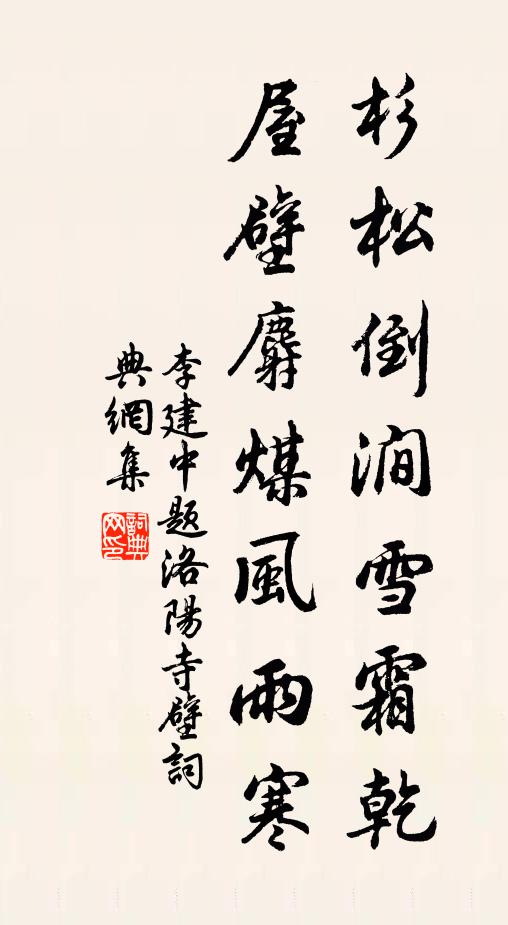 杉松倒澗雪霜乾
屋壁麝煤風雨寒
李建中題洛陽寺壁詞
典網集
詞典網印